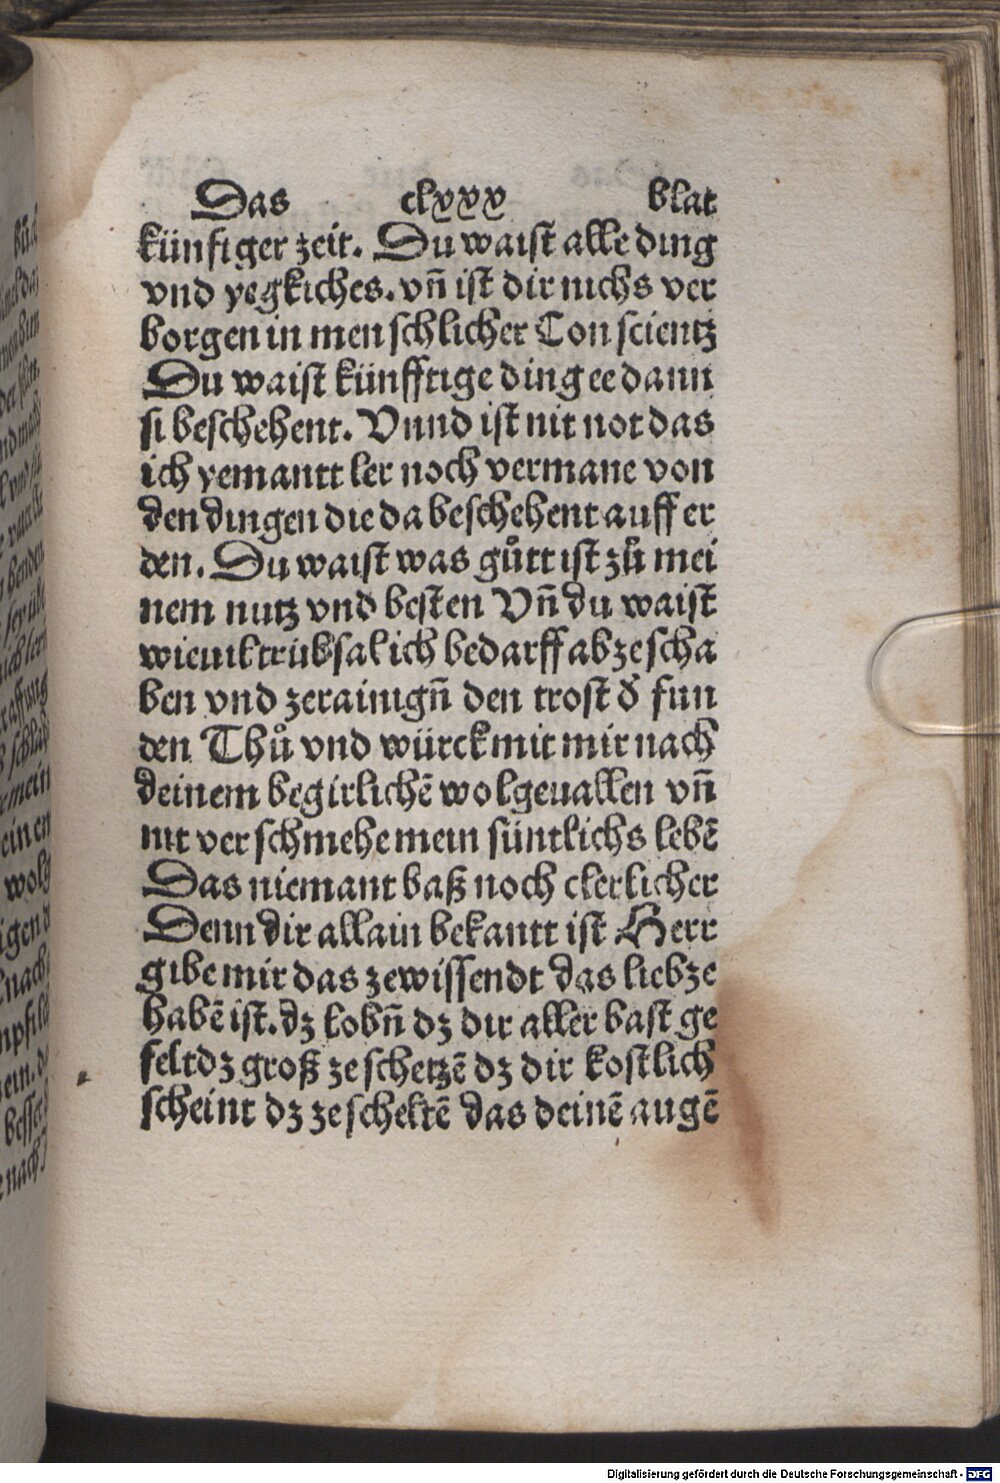 Das clxxx blat
künfiger zeit. Du waist alle ding
vnd yegkiches. vn̄ ist dir nichs ver
borgen in menschlicher Conscientz
Du waist künfftige ding ee dann
si beschehent. Vnnd ist nit not das
ich yemantt ler noch vermane von
den dingen die da beschehent auff er
den. Du waist was gůtt ist zů mei
nem nutz vnd besten Vn̄ du waist
wieuil trübsal ich bedarff abzescha
ben vnd zerainign̄ den trost d̕ sun
den Thů vnd würck mit mir nach
deinem begirlichē wolgeuallen vn̄
nit verschmehe mein süntlichs lebē
Das niemant baß noch clerlicher
Denn dir allain bekantt ist Herr
gibe mir das zewissendt das lieb ze
habē ist. dz lobn̄ dz dir aller bast ge
felt dz groß ze schetzē dz dir kostlich
scheint dz ze scheltē das deinē augē
Digitalisierung gefördert durch die Deutsche Forschungsgemeinschaft - DFG